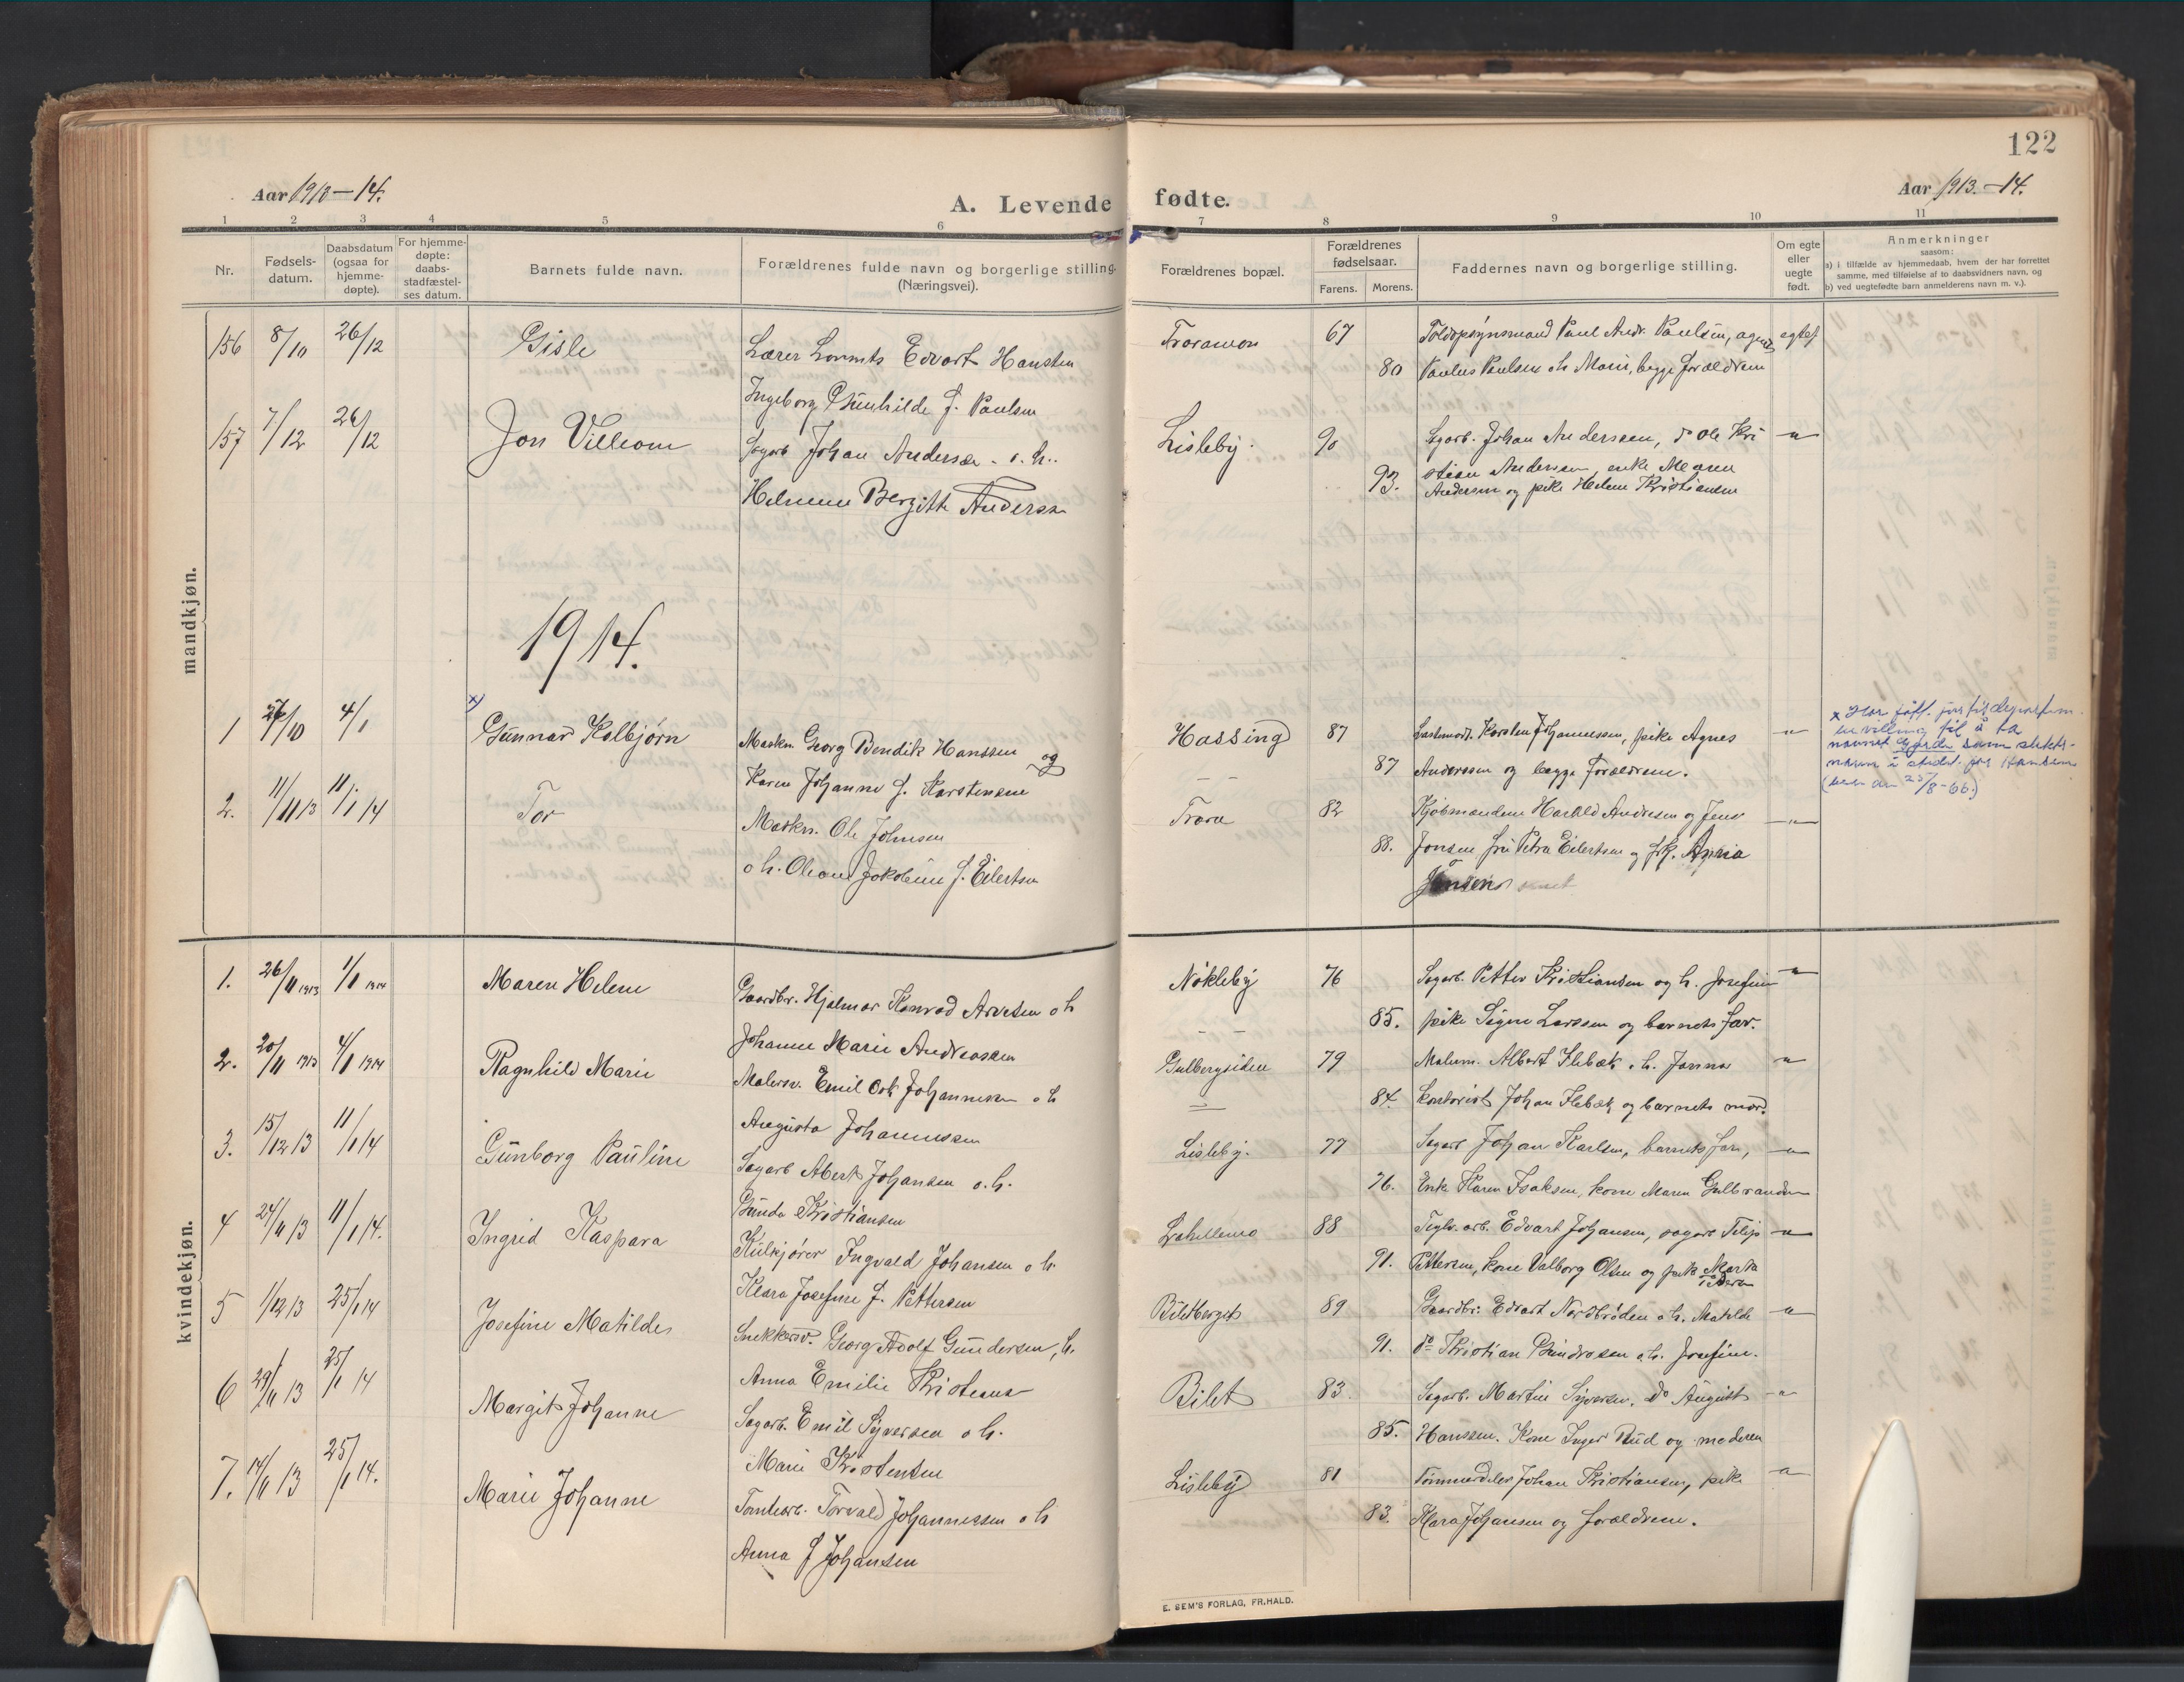 122
Aar 1913-14.
A. Levende fødte.
Aar 1913.-14.
1 2 3 4 5 6 7 8 9 10 11
Nr.
Fødsels-
datum.
Daabsdatum
(ogsaa for
hjemme-
døpte).
For hjemme-
døpte:
daabs-
stadfæstel-
ses datum.
Barnets fulde navn.
Forældrenes fulde navn og borgerlige stilling.
(Næringsvei).
Forældrenes bopæl.
Forældrenes
fødselsaar.
Farens. Morens.
Faddernes navn og borgerlige stilling.
Om egte
eller
uegte
født.
Anmerkninger
saasom:
a) i tilfælde av hjemmedaab, hvem der har forrettet
samme, med tilføielse af to daabsvidners navn, og
b) ved uegtefødte barn anmelderens navn m. v.).
mandkjøn.
156 8/10 26/12 Gisle Lærer Edvart Hansten Traramon 67 Toldopsynsmand Paul Andr. Paulsen, egtef
Ingeborg Gunhilde f. Paulsen 80 Paulus Paulsen o h Marie, begge forældrene
157 7/12 26/12 Jon Villiam Sagarb Johan Andersen o. h. Lisleby. 90 Sagarb. Johan Anderssen, do Ole Kri - " -
Helmine Bergitte Anderssen 93. stian Andersen, enke Maren
Andersen og pike Helene Kristiansen
1914.
x)
1 27/10 4/1 Gunnar Kolbjørn Maskn. Georg Bendik Hanssen og Hassing 87 Karsten Johannessen, pike Agnes - " -
Karen Johanne f. Karstensen - - 87 Anderssen og begge forældrene.
x Har fått justisdepartem.
bevilling til å ta
navnet Gjerde som slekts-
navn i stedet for Hansen
25/8-66.)
2. 11/11 13 11/1 14 Tor Maskn. Ole Johnsen Trara 82 Kjøbmændene Harald Andresen og Jens - " -
o h. Oleane Jakobine f. Eilertsen 88. Jonsen fru Petra Eilertsen og frk. Anna
Jensen
kvindekjøn.
1. 26/11 1913 1/1 1914 Maren Helene Gaardbr. Hjalmar Konrad Arvesen o h Nøkleby 76 Sagarb. Petter Kristiansen og h. Josefine - " -
Johanne Marie Andreassen - - 85. pike Signe Larssen og barnets far.
2. 20/11 1913 4/1 1914 Ragnhild Marie Malersv. Emil Osk Johannesen o h Gulbergsiden 79 Malerm. Albert Flebæk o. h. Janna "
Augusta Johannessen 84. kontorist Johan Flebæk og barnets mor.
3. 15/12 13 11/1 14 Gunborg Pauline Sagarb Albert Johansen o. h. Lisleby. 77 Sagarb Johan Karlsen, barnets far, - " -
Gunda Kristiansen 76. Enke Karen Isaksen, kone Maren Gulbrandsen
4 24/11 13 11/1 14. Ingrid Kaspara Kulkjører Ingvald Johansen o h. Lahellemo 88 Teglv. arb. Edvart Johansen, sagarb Filip - " -
Klara Josefine f. Pettersen 91. Pettersen, kone Valborg Olsen og pike Marta
Pedersen
5 1/12 13 25/1 14 Josefine Matilde Snekkersv. Georg Adolf Gundersen, h. Biletberget 89 Gaardbr. Edvart Nordbrøden o h. Matilde - " -
Anna Emilie Kristiansen 91. do Kristian Gundersen o. h. Josefine.
6 29/11 13 25/1 14 Margit Johanne Sagarb. Emil Syversen o h. Bilet 83. Sagarb. Martin Syversen, do August - " -
Marie Kristensen 85. Hanssen. Kone Inger Rud og moderen
7. 14/11 13 25/1 14. Marie Johanne Tomtearb. Torvald Johannessen o h Lisleby 81 Tømmerdeler Johan Kristiansen, pike - " -
Anna f Johansen 83. Klara Johansen og forældrene.
E. SEM'S FORLAG, FR.HALD.